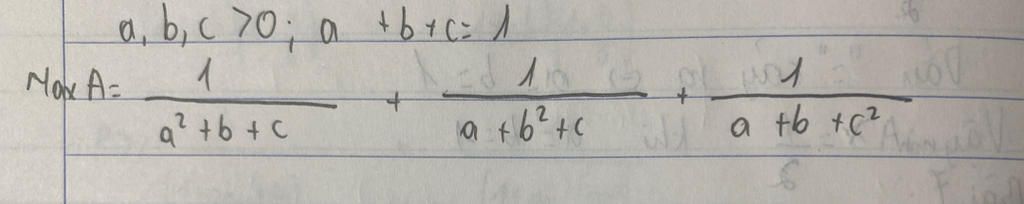 a, b, c > 0; a + b + c = 1
Max A = 1/(a² + b + c) + 1/(a + b² + c) + 1/(a + b + c²)